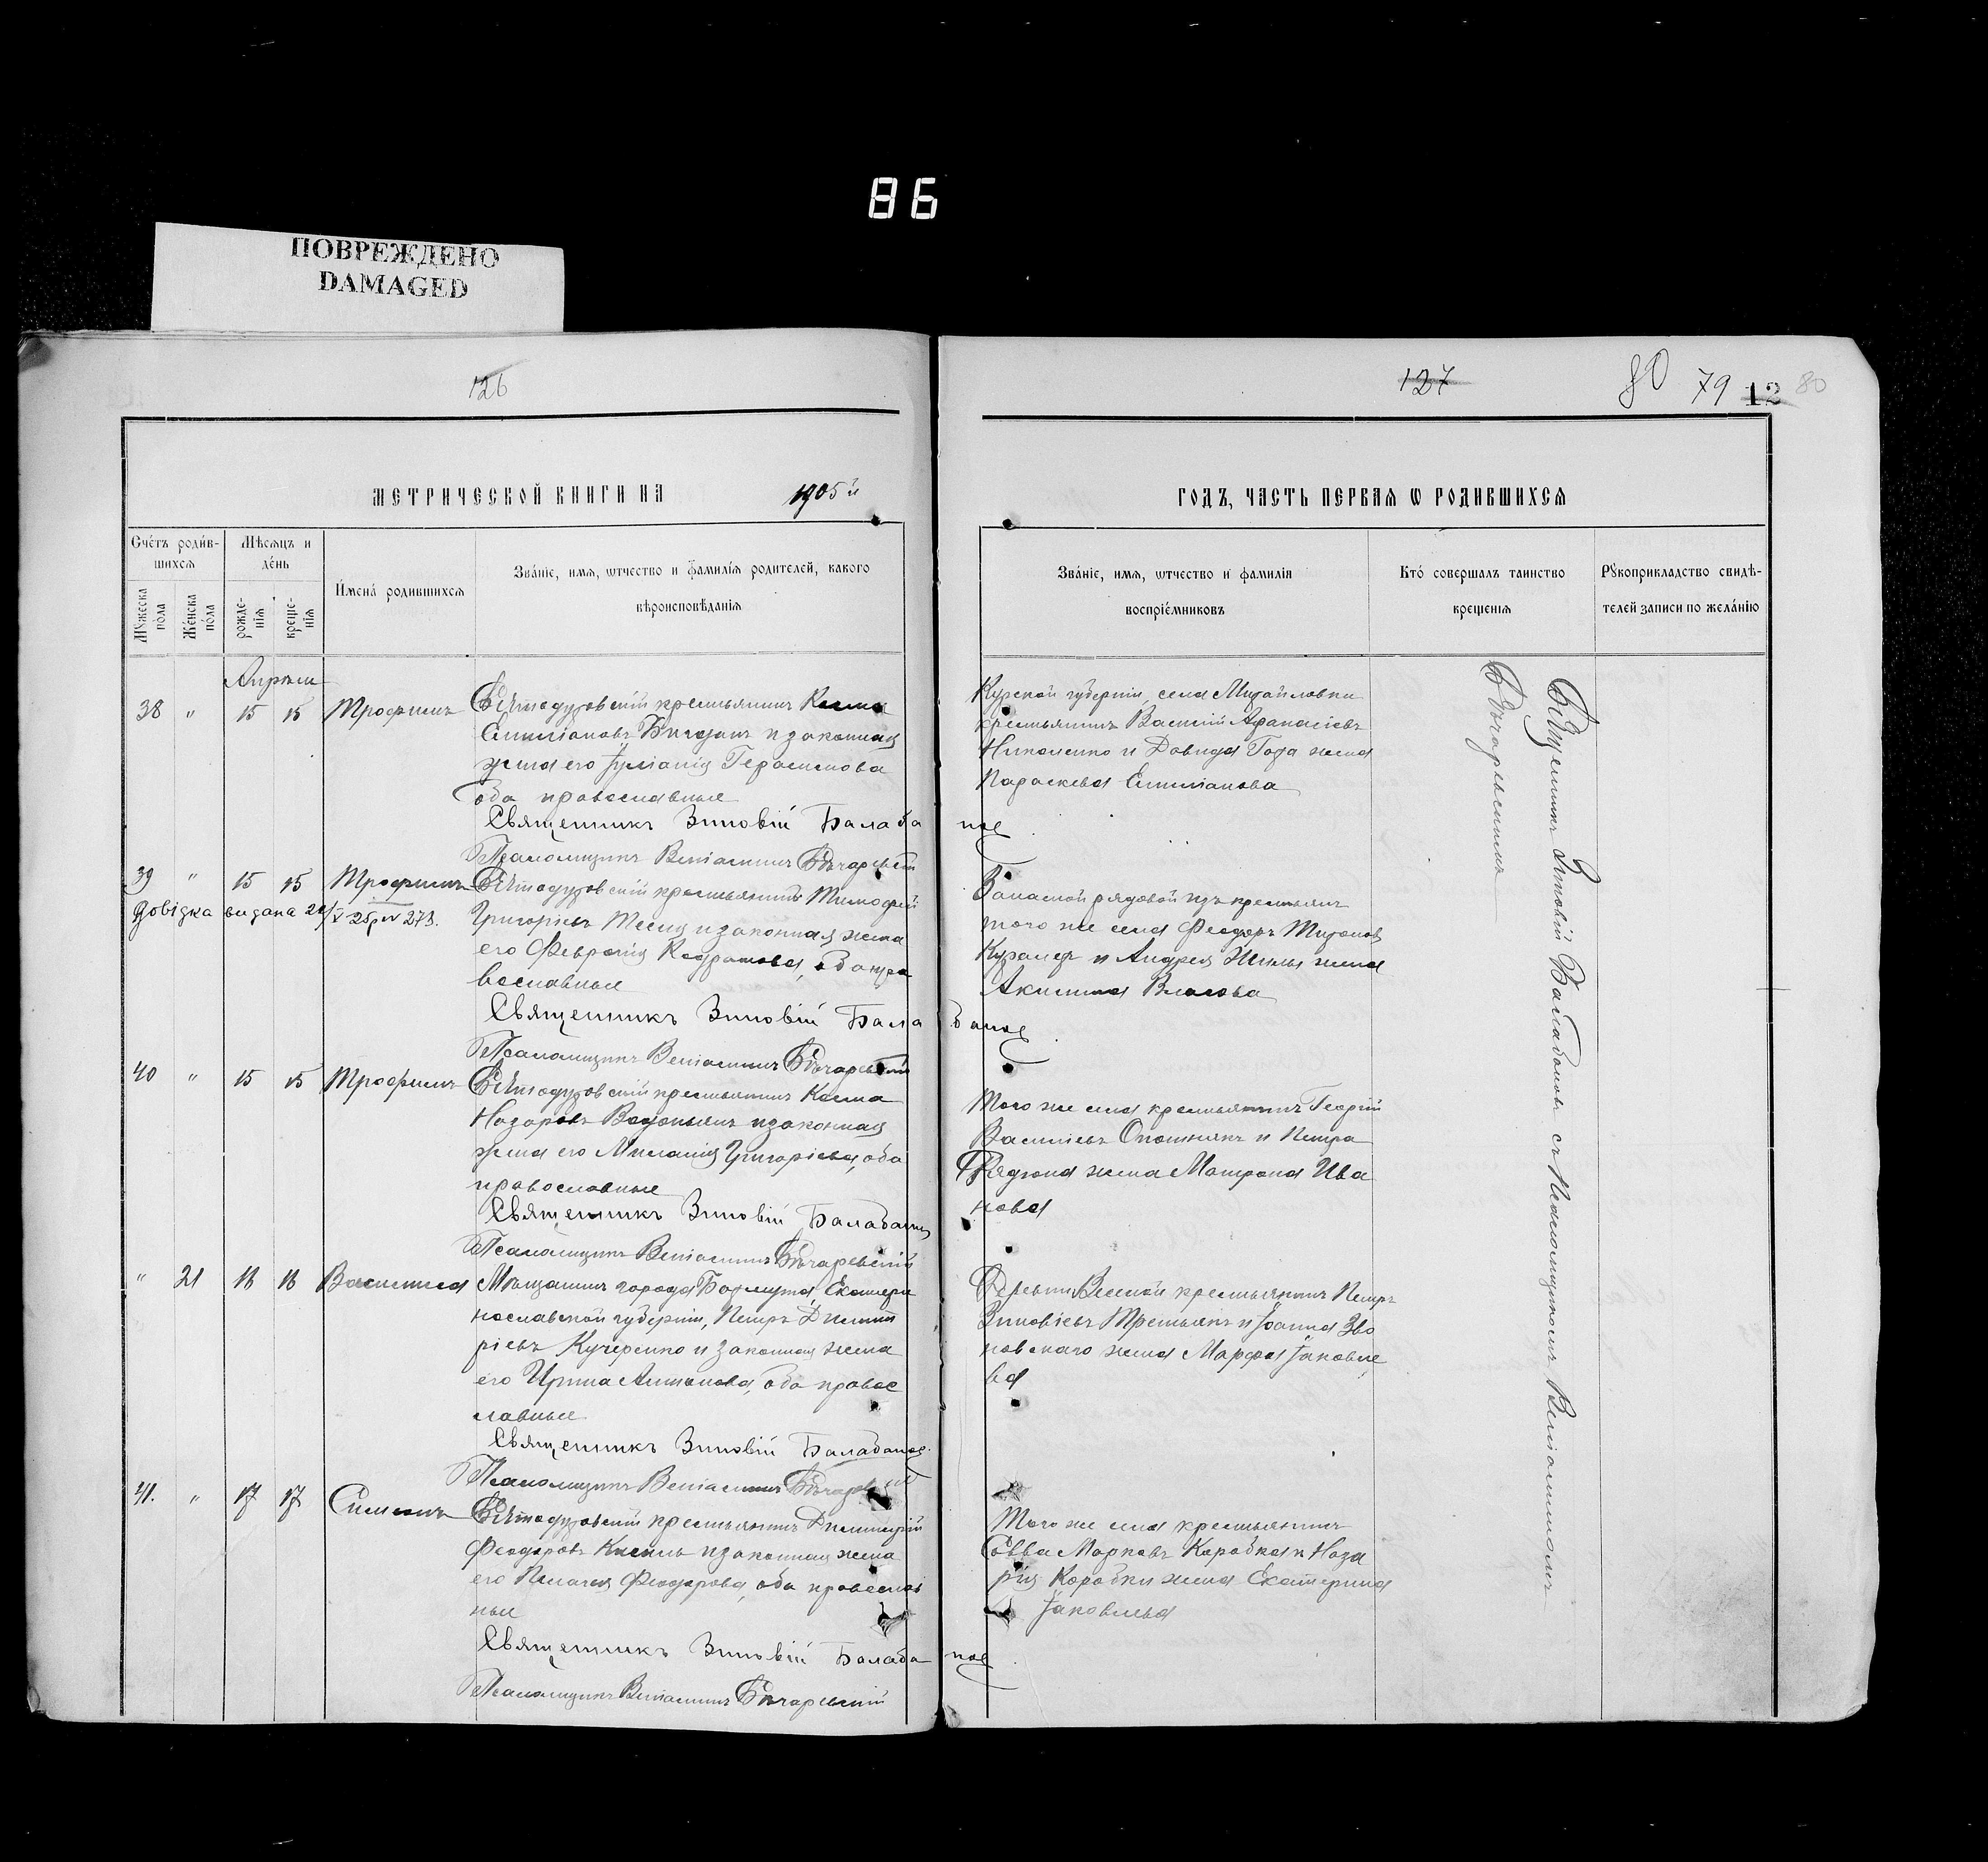 86
ПОВРЕЖДЕНО
DAMAGED
126
МЕТРИЧЕСКОЙ КНИГИ НА 1905 й
Счетъ родив-
шихся
Мѣсяцъ и
день
Мужеска пола
Женска пола
рожде-
нія
креще-
нія
Имена родившихся
Званіе, имя, ѿтчество и фамилія родителей, какого
вѣроисповѣданія
Апрѣля
38 " 15 15 Трофимъ
крестьянинъ Косма
Емиліановъ и законная
жена его Іуліанія Герасимова
оба православные
Священникъ Зиновій Балабановъ
Псаломщикъ Веніаминъ Бѣчаревскій
39 " 15 15 Трофимъ
Довідка видана 273.
крестьянинъ Тимофей
Григорьевъ и законная жена
его Февронія оба пра
вославные
Священникъ Зиновій Балабановъ
Псаломщикъ Веніаминъ Бѣчаревскій
40 " 15 15 Трофимъ
крестьянинъ Косма
Назаровъ и законная
жена его Миланія Григорьева, оба
православные
Священникъ Зиновій Балабановъ
Псаломщикъ Веніаминъ Бѣчаревскій
" 21 16 16 Василиса
Мѣщанинъ города Бахмута, Екатери
нославской губерніи, Петръ Димит
ріевъ Кучеренко и законная жена
его Ирина оба правос
лавные
Священникъ Зиновій Балабановъ
Псаломщикъ Веніаминъ Бѣчаревскій
41. " 17 17 Симеонъ
крестьянинъ Димитрій
Феодоровъ и законная жена
его Пелагея Феодорова, оба православ
ные
Священникъ Зиновій Балабановъ
Псаломщикъ Веніаминъ Бѣчаревскій
127
80 79 12 80
ГОДЪ, ЧАСТЬ ПЕРВАЯ Ѡ РОДИВШИХСЯ
Званіе, имя, ѿтчество и фамилія
воспріемниковъ
Кто совершалъ таинство
крещенія
Рукоприкладство свидѣ-
телей записи по желанію
Курской губерніи, села Михайловки
крестьянинъ Василій Афанасіевъ
Николенко и Давида жена
Параскева Емиліанова
Запасной рядовой изъ крестьянъ
того же села Феодоръ
и Андрея жена
Акилина Власова
Того же села крестьянинъ Георгій
Василіевъ и Петра
жена Матрона Ива
нова
Деревни крестьянинъ Петръ
Зиновіевъ Третьякъ и Іоанна Зво
новскаго жена Марфа Іаковле
ва
Того же села крестьянинъ
Савва Марковъ Коробка и Наза
рія Коробки жена Екатерина
Іаковлева
Священникъ Зиновій Балабановъ съ Псаломщикомъ Веніаминомъ
Бѣчаревскимъ